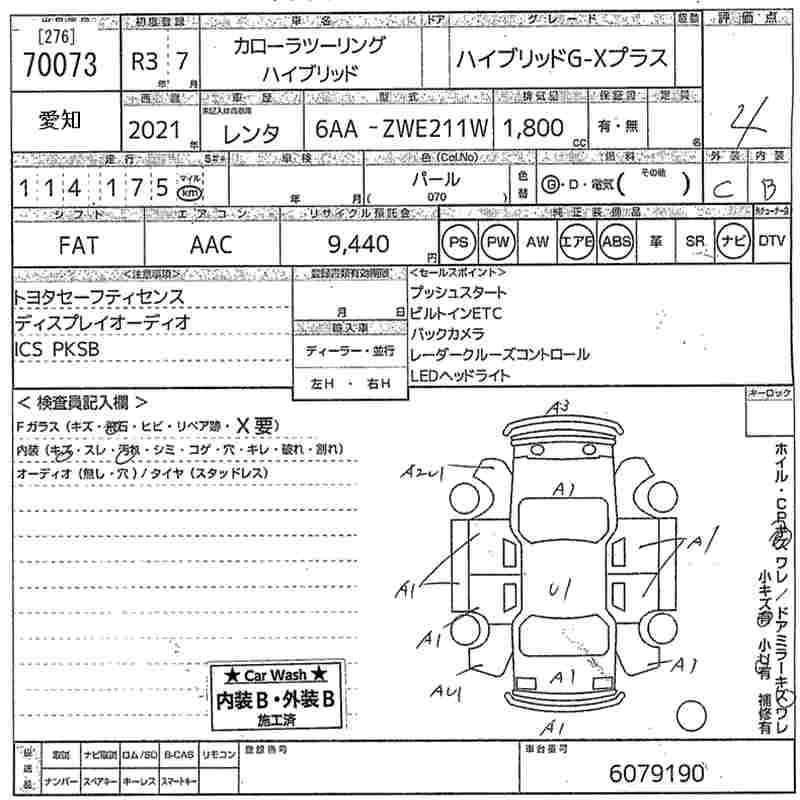 [276]
70073
初度登録
R3 年 7 月
車名
カローラツーリング
ハイブリッド
ドア
グレード
ハイブリッドG-Xプラス
評価点
4
愛知
2021 年
車歴
レンタ
型式
6AA - ZWE211W
排気量
1,800 cc
保証書
有・無
定員
名
走行
114175
マイル
km
車検
年 月
色(Col.No)
パール
( 070 )
色替
燃料
G・D・電気( その他 )
外装
C
内装
B
シフト
FAT
エアコン
AAC
リサイクル預託金
9,440 円
純正装備品
PS PW AW エアB ABS 革 SR ナビ DTV
<注意事項>
トヨタセーフティセンス
ディスプレイオーディオ
ICS PKSB
登録書類有効期限
月 日
輸入車
ディーラー・並行
左H ・ 右H
<セールスポイント>
プッシュスタート
ビルトインETC
バックカメラ
レーダークルーズコントロール
LEDヘッドライト
< 検査員記入欄 >
Fガラス(キズ・飛石・ヒビ・リペア跡・X要)
内装(キズ・スレ・汚れ・シミ・コゲ・穴・キレ・破れ・割れ)
オーディオ(無し・穴)/タイヤ(スタッドレス)
キーロック
A3
A2U1
A1
A1
A1
U1
A1
AU1
A1
A1
A1
ホイル・CPキズ ワレ/ドアミラーキズ ワレ
小キズ有 小凹有 補修有
★ Car Wash ★
内装B・外装B
施工済
取説 ナビ取説 ロム/SD B-CAS リモコン
ナンバー スペアキー キーレス スマートキー
登録番号
車台番号
6079190